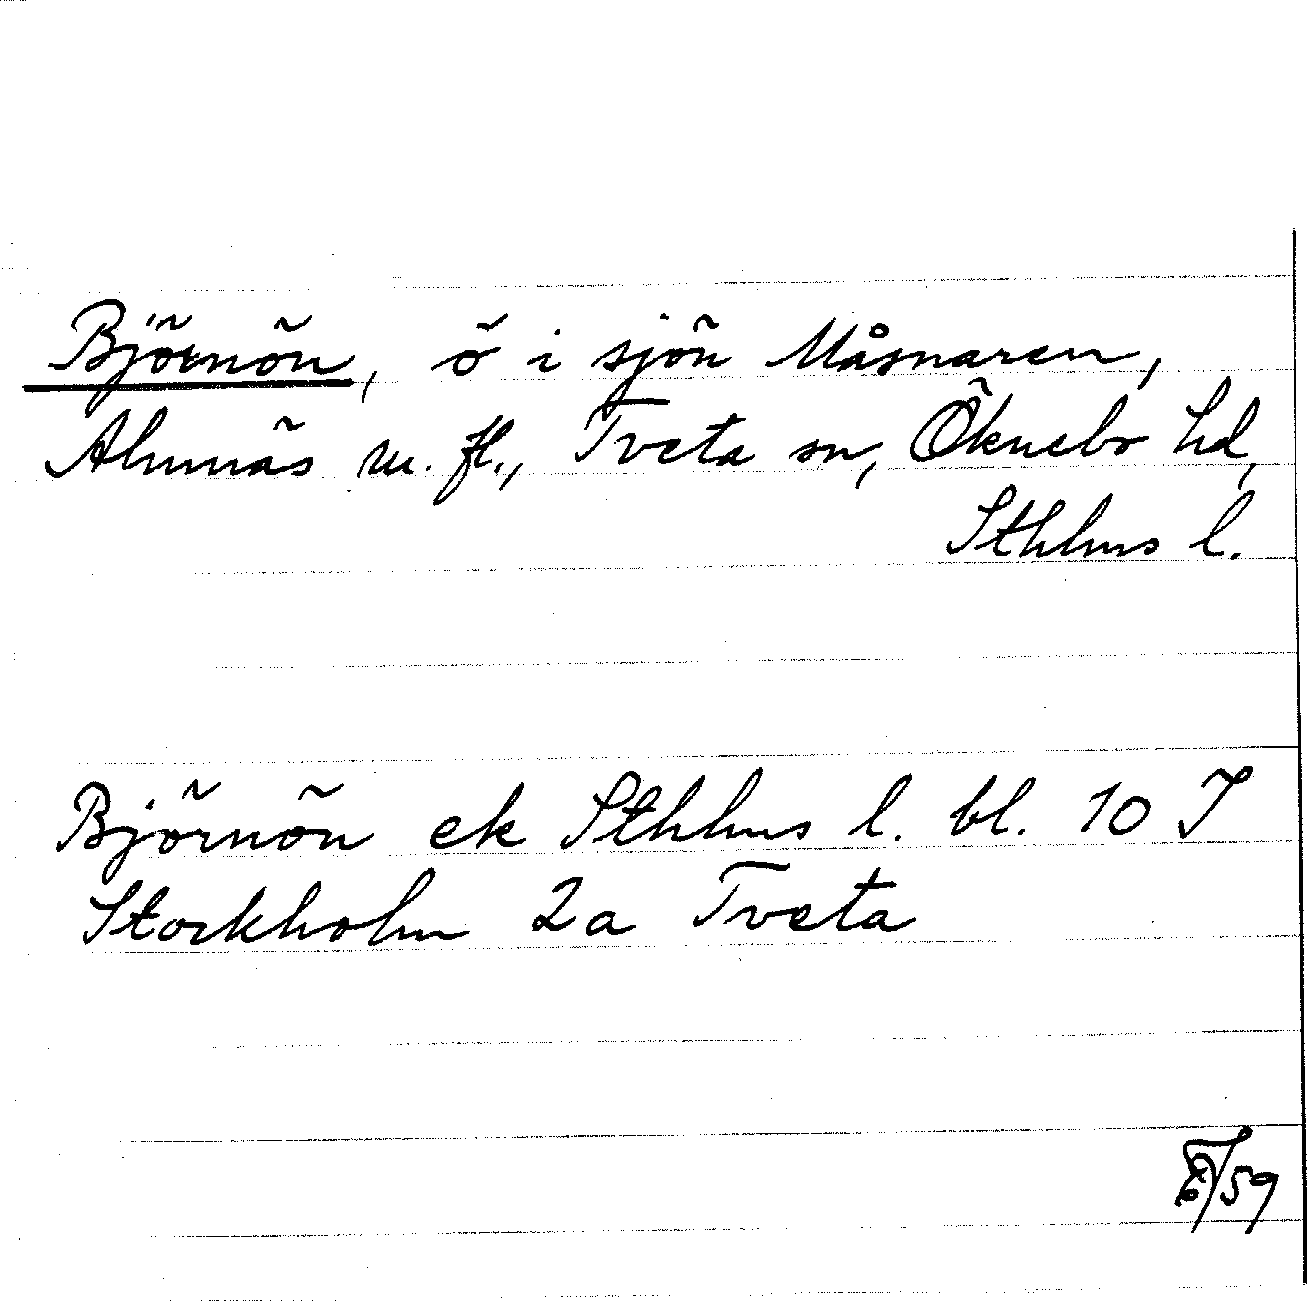 Björnön, ö i sjön Måsnaren,
Almnäs m. fl., Tveta sn, Öknebo hd,
Sthlms l.
Björnön ek Sthlms l. bl. 10 I
Stockholm 2a Tveta
/59